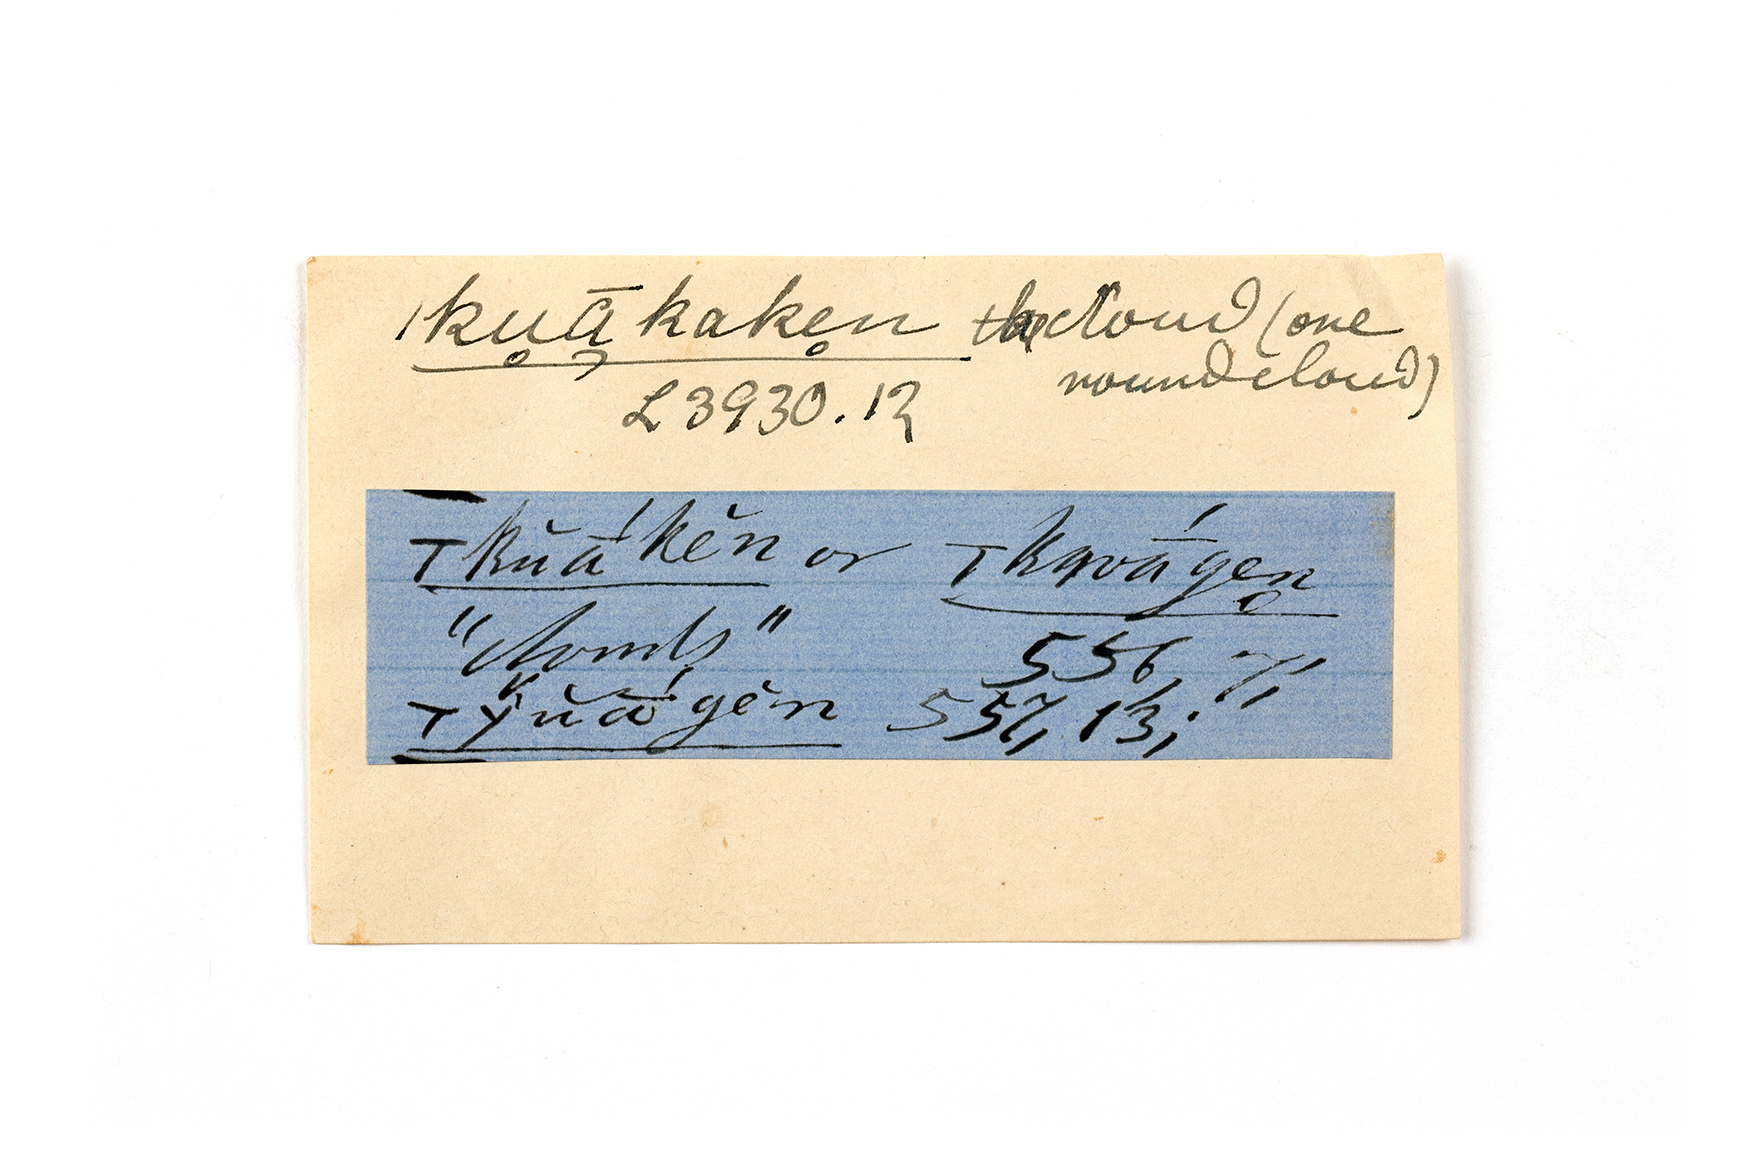 |ku̥ā̜kake̥n the cloud (one
round cloud)
L3930.12
Tkŭā́kĕn or Tkqvā́ge̥n
"clouds" 556, 7,"
Tkŭā́gĕn 557, 13;